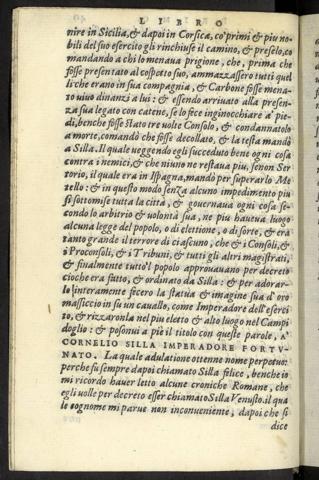 LIBRO
nire in Sicilia, & dapoi in Corsica, co' primi & piu no-
bili del suo esercito gli rinchiuse il camino, & preselo, co
mandando a chi lo menaua prigione, che, prima che
fosse presentato al cospetto suo, ammazzassero tutti quel
li che erano in sua compagnia, & Carbone fosse mena-
to viuo dinanzi a lui: & essendo arriuato alla presen-
za sua legato con catene, se lo fece inginocchiare a' pie-
di, benche fosse stato tre volte Consolo, & condannatolo
a morte, comandò che fosse decollato, & la testa mandò
a Silla. Il quale veggendo egli succeduto bene ogni cosa
contra i nemici, & che niuno ne restaua piu, senon Ser
torio, il quale era in Ispagna, mandò per superarlo Me
tello: & in questo modo senza alcuno impedimento piu
si sottomise tutta la città, & gouernaua ogni cosa se-
condo lo arbitrio & volontà sua, ne piu haueua luogo
alcuna legge del popolo, o di elettione, o di sorte, & era
tanto grande il terrore di ciascuno, che & i Consoli, &
i Proconsoli, & i Tribuni, & tutti gli altri magistrati,
& finalmente tutto'l popolo approuauano per decreto
cioche era fatto, & ordinato da Silla: & per adorar-
lo interamente fecero la statua & imagine sua d'oro
massiccio in su un cauallo, come Imperadore dell'eserci
to, & rizzaronla nel piu eletto & alto luogo nel Campi
doglio: & posonui a piè il titolo con queste parole, A'
CORNELIO SILLA IMPERADORE FORTV-
NATO. La quale adulatione ottenne nome perpetuo:
perche fu sempre dapoi chiamato Silla felice, benche io
mi ricordo hauer letto alcune croniche Romane, che
egli volle per decreto esser chiamato Silla Venusto. il qua
le cognome mi parue non inconueniente, dapoi che si
dice